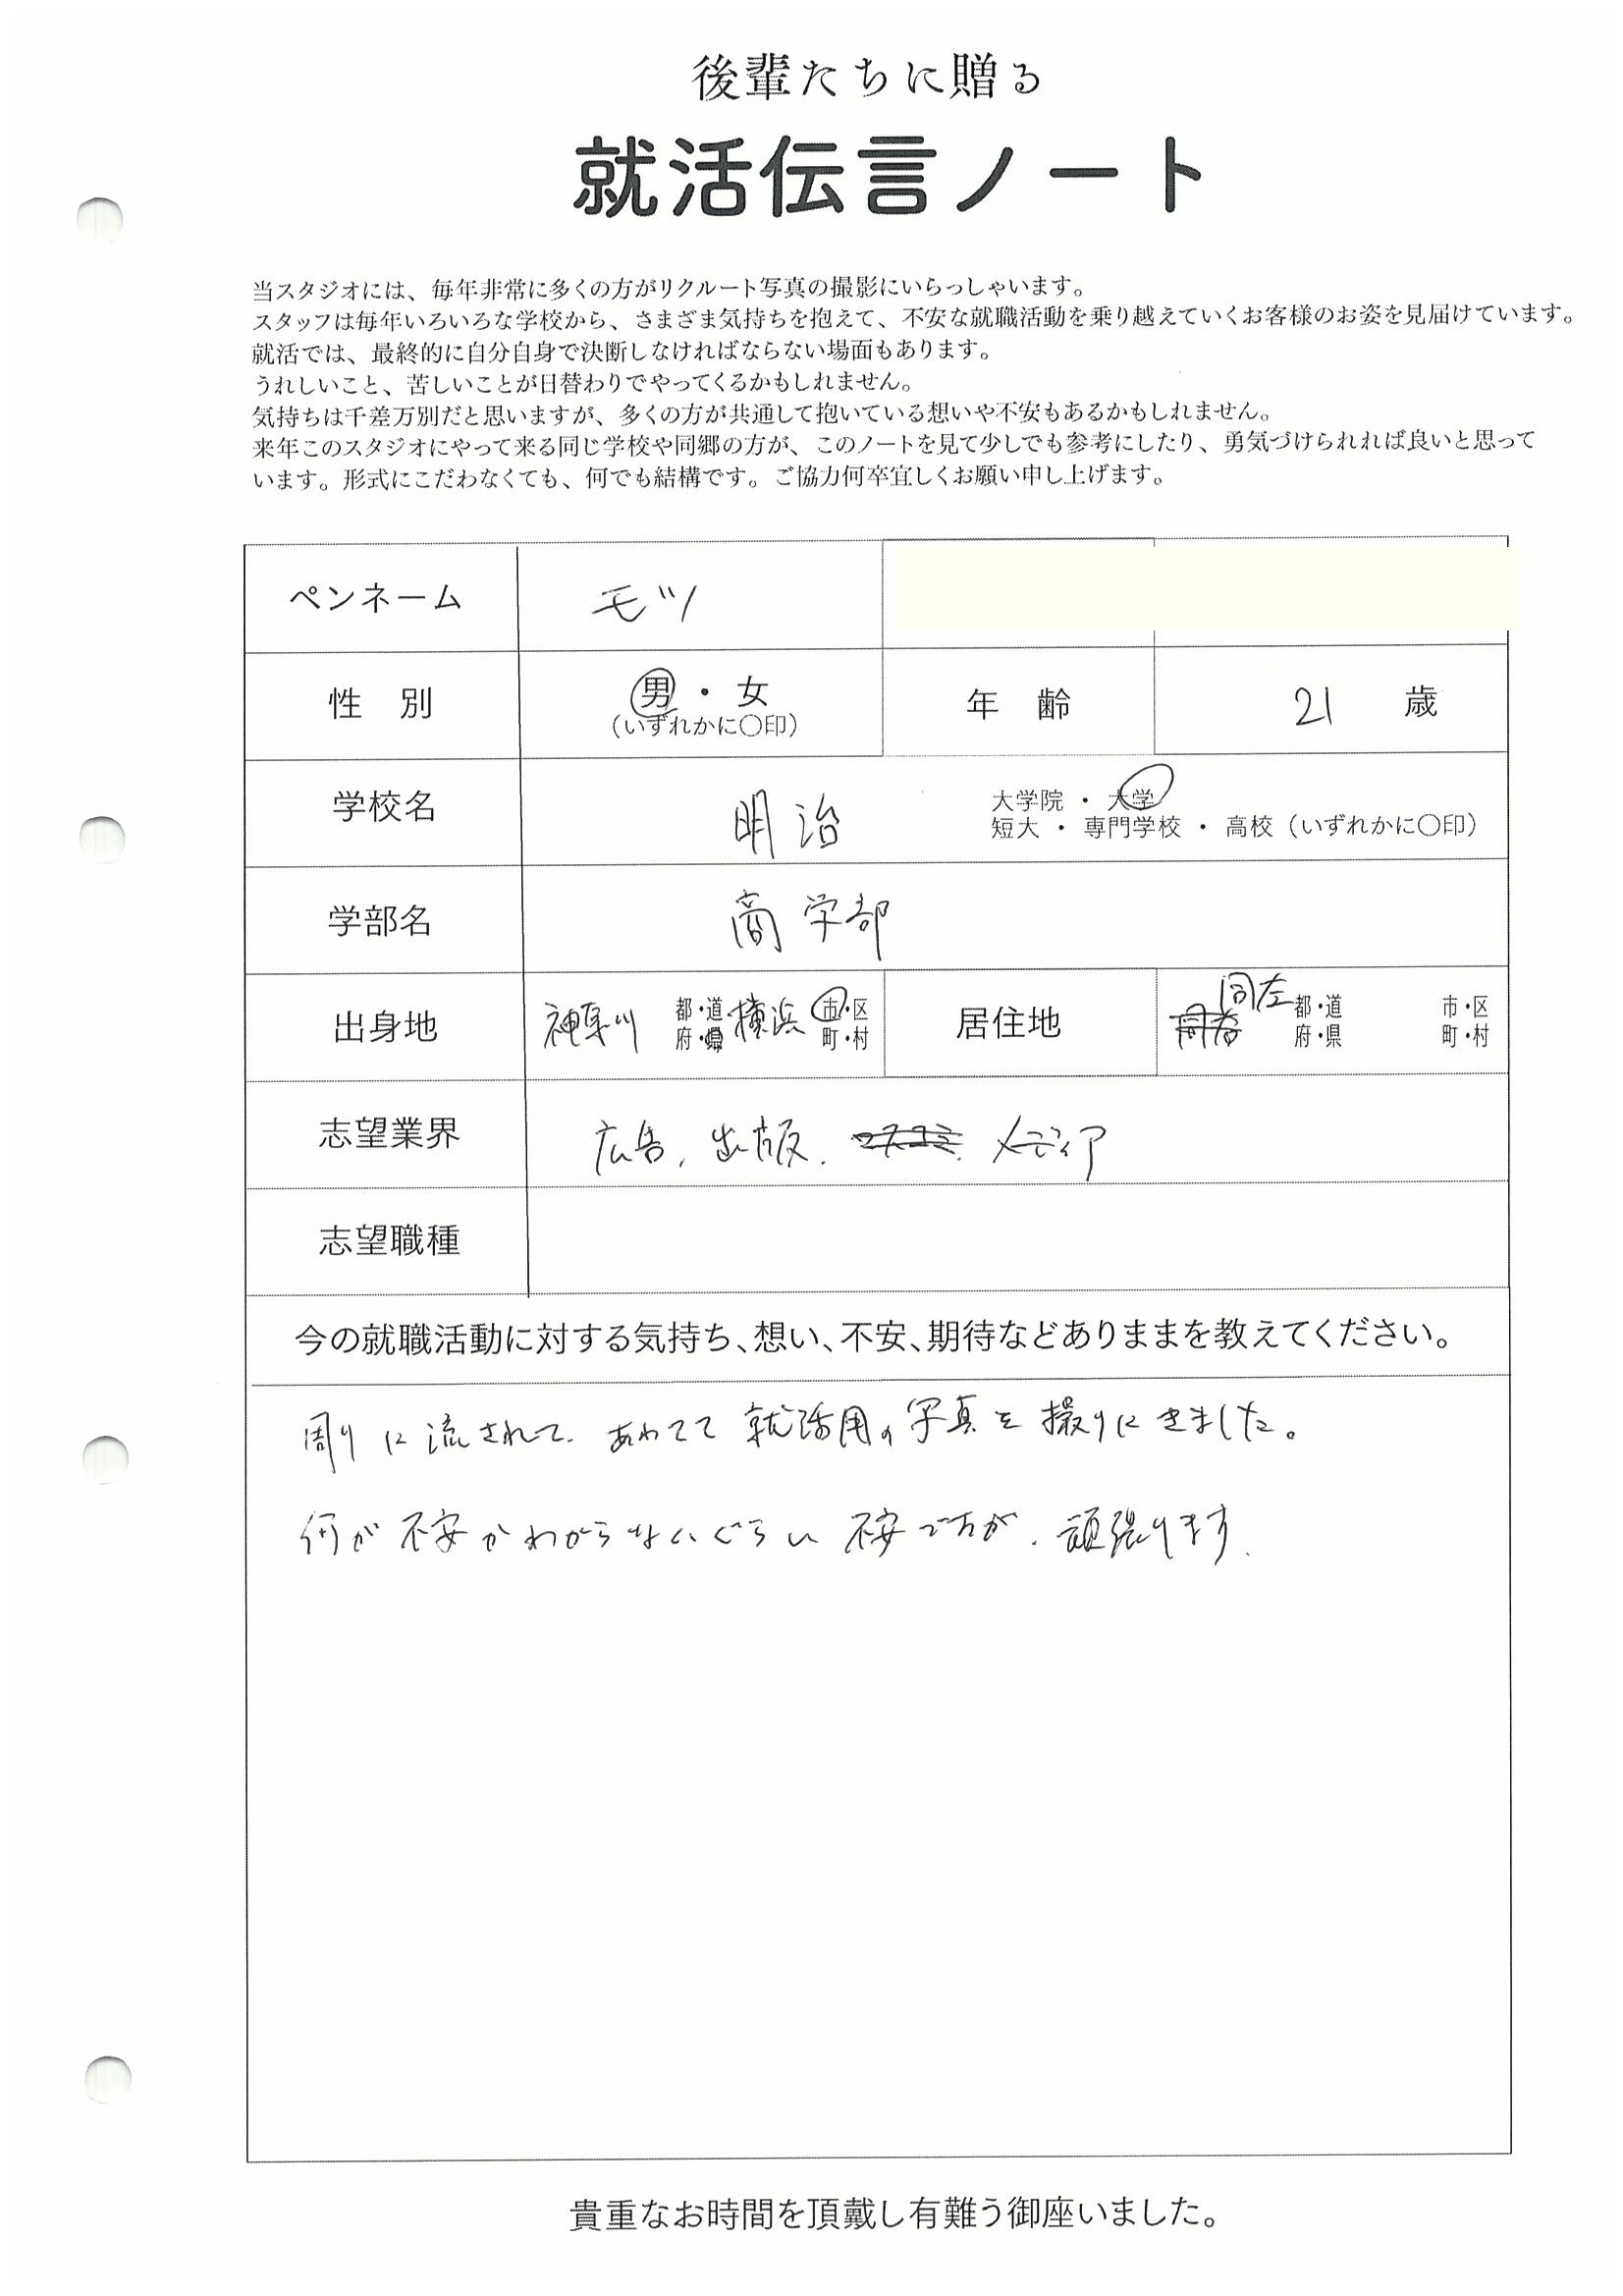 後輩たちに贈る
就活伝言ノート
当スタジオには、毎年非常に多くの方がリクルート写真の撮影にいらっしゃいます。
スタッフは毎年いろいろな学校から、さまざま気持ちを抱えて、不安な就職活動を乗り越えていくお客様のお姿を見届けています。
就活では、最終的に自分自身で決断しなければならない場面もあります。
うれしいこと、苦しいことが日替わりでやってくるかもしれません。
気持ちは千差万別だと思いますが、多くの方が共通して抱いている想いや不安もあるかもしれません。
来年このスタジオにやって来る同じ学校や同郷の方が、このノートを見て少しでも参考にしたり、勇気づけられれば良いと思って
います。形式にこだわなくても、何でも結構です。ご協力何卒宜しくお願い申し上げます。
ペンネーム モツ
性 別 男・女 (いずれかに〇印) 年 齢 21 歳
学校名 明治 大学院・大学
短大・専門学校・高校(いずれかに〇印)
学部名 商学部
出身地 神奈川 都・道 府・県 横浜 市・区 町・村 居住地 同左 都・道 府・県 市・区 町・村
志望業界 広告、出版、メディア
志望職種
今の就職活動に対する気持ち、想い、不安、期待などありままを教えてください。
周りに流されて、あわてて就活用の写真を撮りにきました。
何が不安かわからないぐらい不安ですが、頑張ります。
貴重なお時間を頂戴し有難う御座いました。